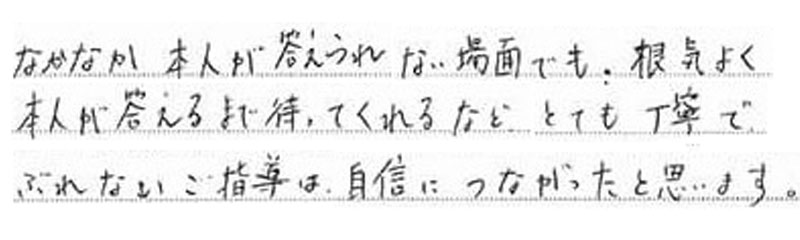 なかなか 本人が答えられない場面でも、根気よく
本人が答えるまで待ってくれるなど とても丁寧で
ぶれないご指導は、自信につながったと思います。